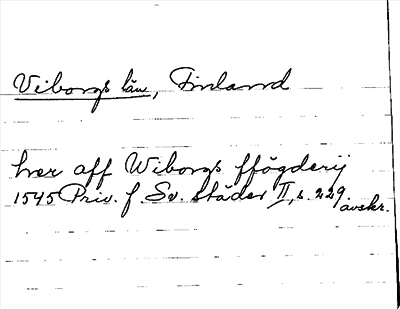 Viborgs län, Finland
hrer aff Wiborgs ffögderij
1545 Priv. f. Sv. städer II, s. 229
avskr.